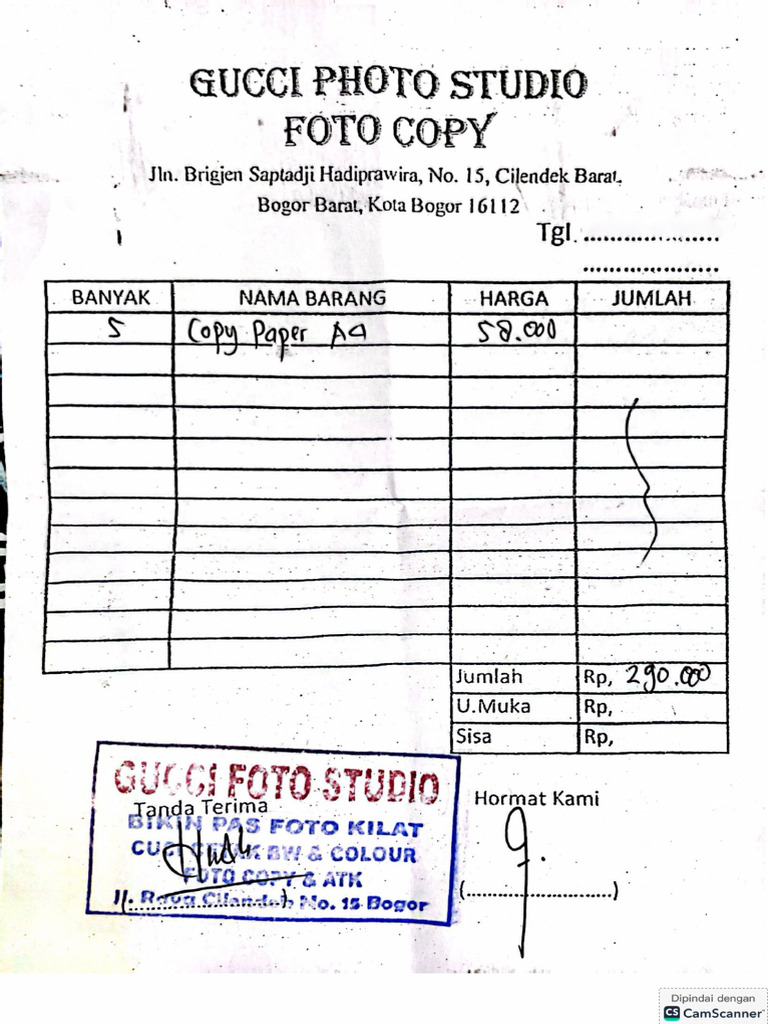 GUCCI PHOTO STUDIO
FOTO COPY
Jln. Brigjen Saptadji Hadiprawira, No. 15, Cilendek Barat.
Bogor Barat, Kota Bogor 16112
Tgl. ....................
....................
BANYAK NAMA BARANG HARGA JUMLAH
5 Copy Paper A4 58.000
Jumlah Rp, 290.000
U.Muka Rp,
Sisa Rp,
GUCCI FOTO STUDIO
Tanda Terima
Hormat Kami
BIKIN PAS FOTO KILAT
CUCI CETAK BW & COLOUR
FOTO COPY & ATK
Jl. Raya Cilendek No. 15 Bogor
(..........................)
Dipindai dengan
CS CamScanner